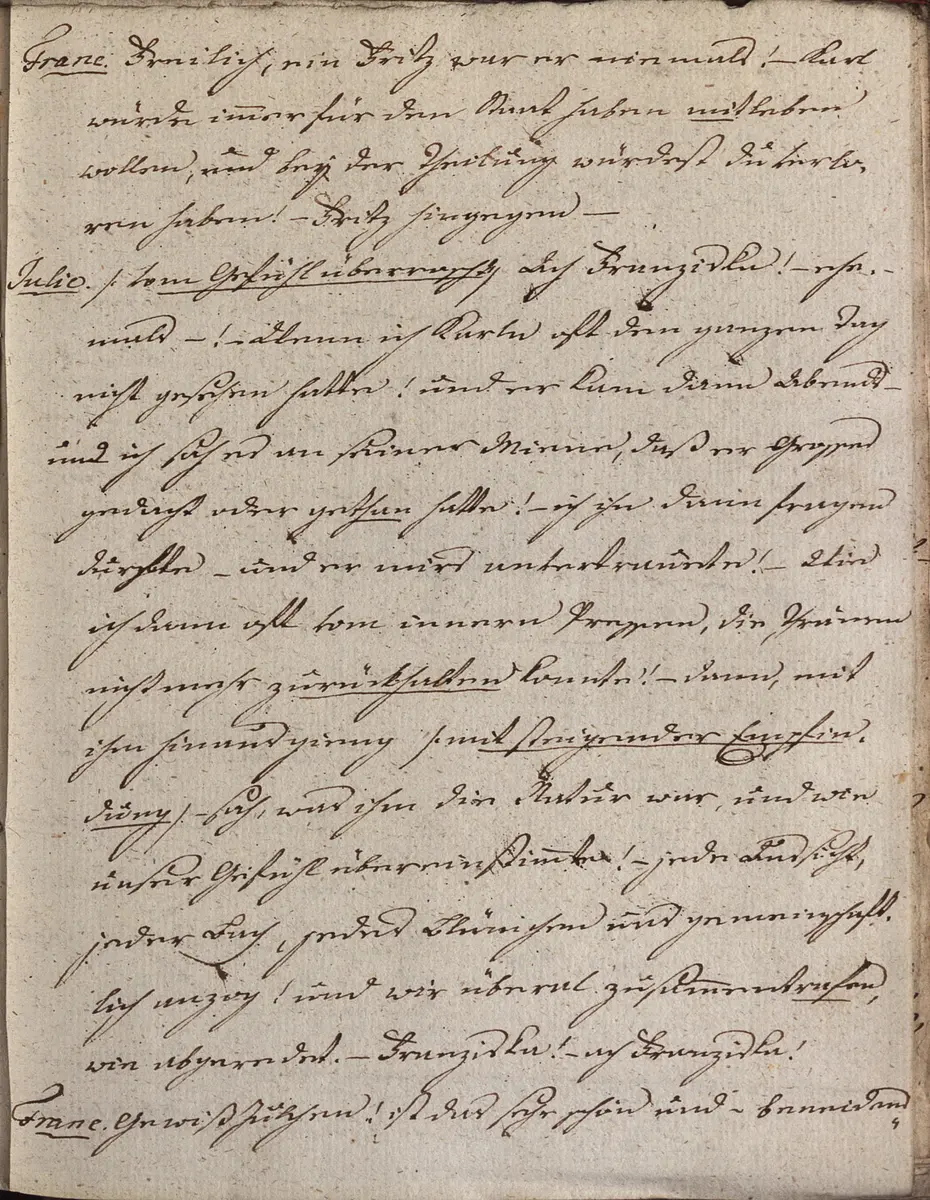 Franc. Freilich, ein Fritz war er niemals! – Karl
würde immer für den Staat haben mitleben
wollen, und bey der Theilung würdest du verlo-
ren haben! – Fritz hingegen –
Julie. /: vom Gefühl überrascht :/ Ach Franziska! – ehe-
mals – ! – Wenn ich Karln oft den ganzen Tag
nicht gesehen hatte! und er kam dann Abends –
und ich sah es an seiner Miene, daß er Grosses
gedacht oder gethan hatte! – ich ihn dann fragen
durfte – und er mirs anvertrauete! – Wie
ich dann oft vom innern Pressen, die Tränen
nicht mehr zurückhalten konnte! – dann, mit
ihm hinausgieng /: mit steigender Empfin-
dung :/ – sah, was ihm die Natur war, und wie
unser Gefühl übereinstimmte! – jede Aussicht,
jeder Bach, jedes Blümchen uns gemeinschaft-
lich anzog! und wir überal zusammentrafen,
wie abgeredet. – Franziska! – ach Franziska!
Franc. Gewiß Julchen! ist das sehr schön und –